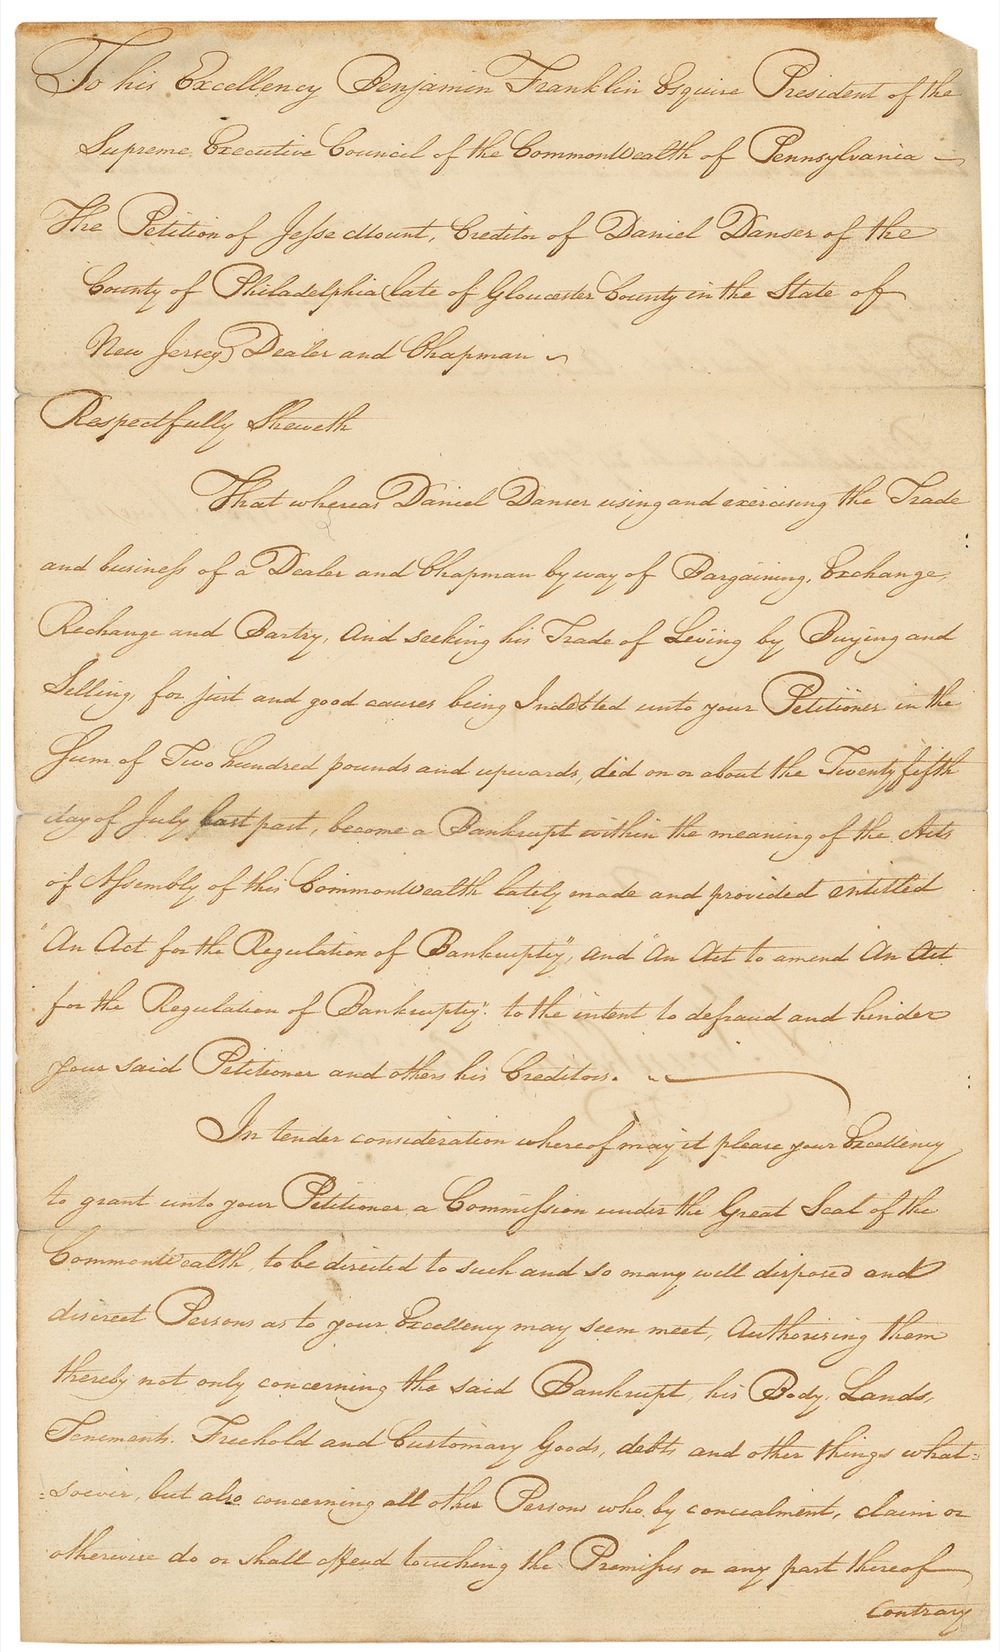 To his Excellency Benjamin Franklin Esquire President of the
Supreme Executive Council of the CommonWealth of Pennsylvania —
The Petition of Jesse Mount, Creditor of Daniel Danser of the
County of Philadelphia (late of Gloucester County in the State of
New Jersey) Dealer and Chapman ~
Respectfully Sheweth
That whereas Daniel Danser using and exercising the Trade
and business of a Dealer and Chapman by way of Bargaining, Exchange,
Rechange and Bartry, And seeking his Trade of Leving by Buying and
Selling, for just and good causes being Indebted unto your Petitioner in the
Sum of Two hundred pounds and upwards, did on or about the Twenty fifth
day of July last past, become a Bankrupt within the meaning of the Acts
of Assembly of this CommonWealth lately made and provided entitled
"An Act for the Regulation of Bankruptcy", and "An Act to amend An Act
for the Regulation of Bankruptcy" to the intent to defraud and hinder
your said Petitioner and others his Creditors.
In tender consideration whereof may it please your Excellency
to grant unto your Petitioner a Commission under the Great Seal of the
CommonWealth, to be directed to such and so many well disposed and
discreet Persons as to your Excellency may seem meet, Authorising them
thereby not only concerning the said Bankrupt, his Body, Lands,
Tenements, Freehold and Customary Goods, debts and other things what=
=soever, but also concerning all other Persons who by concealment, claim or
otherwise do or shall offend touching the Premises or any part thereof
Contrary